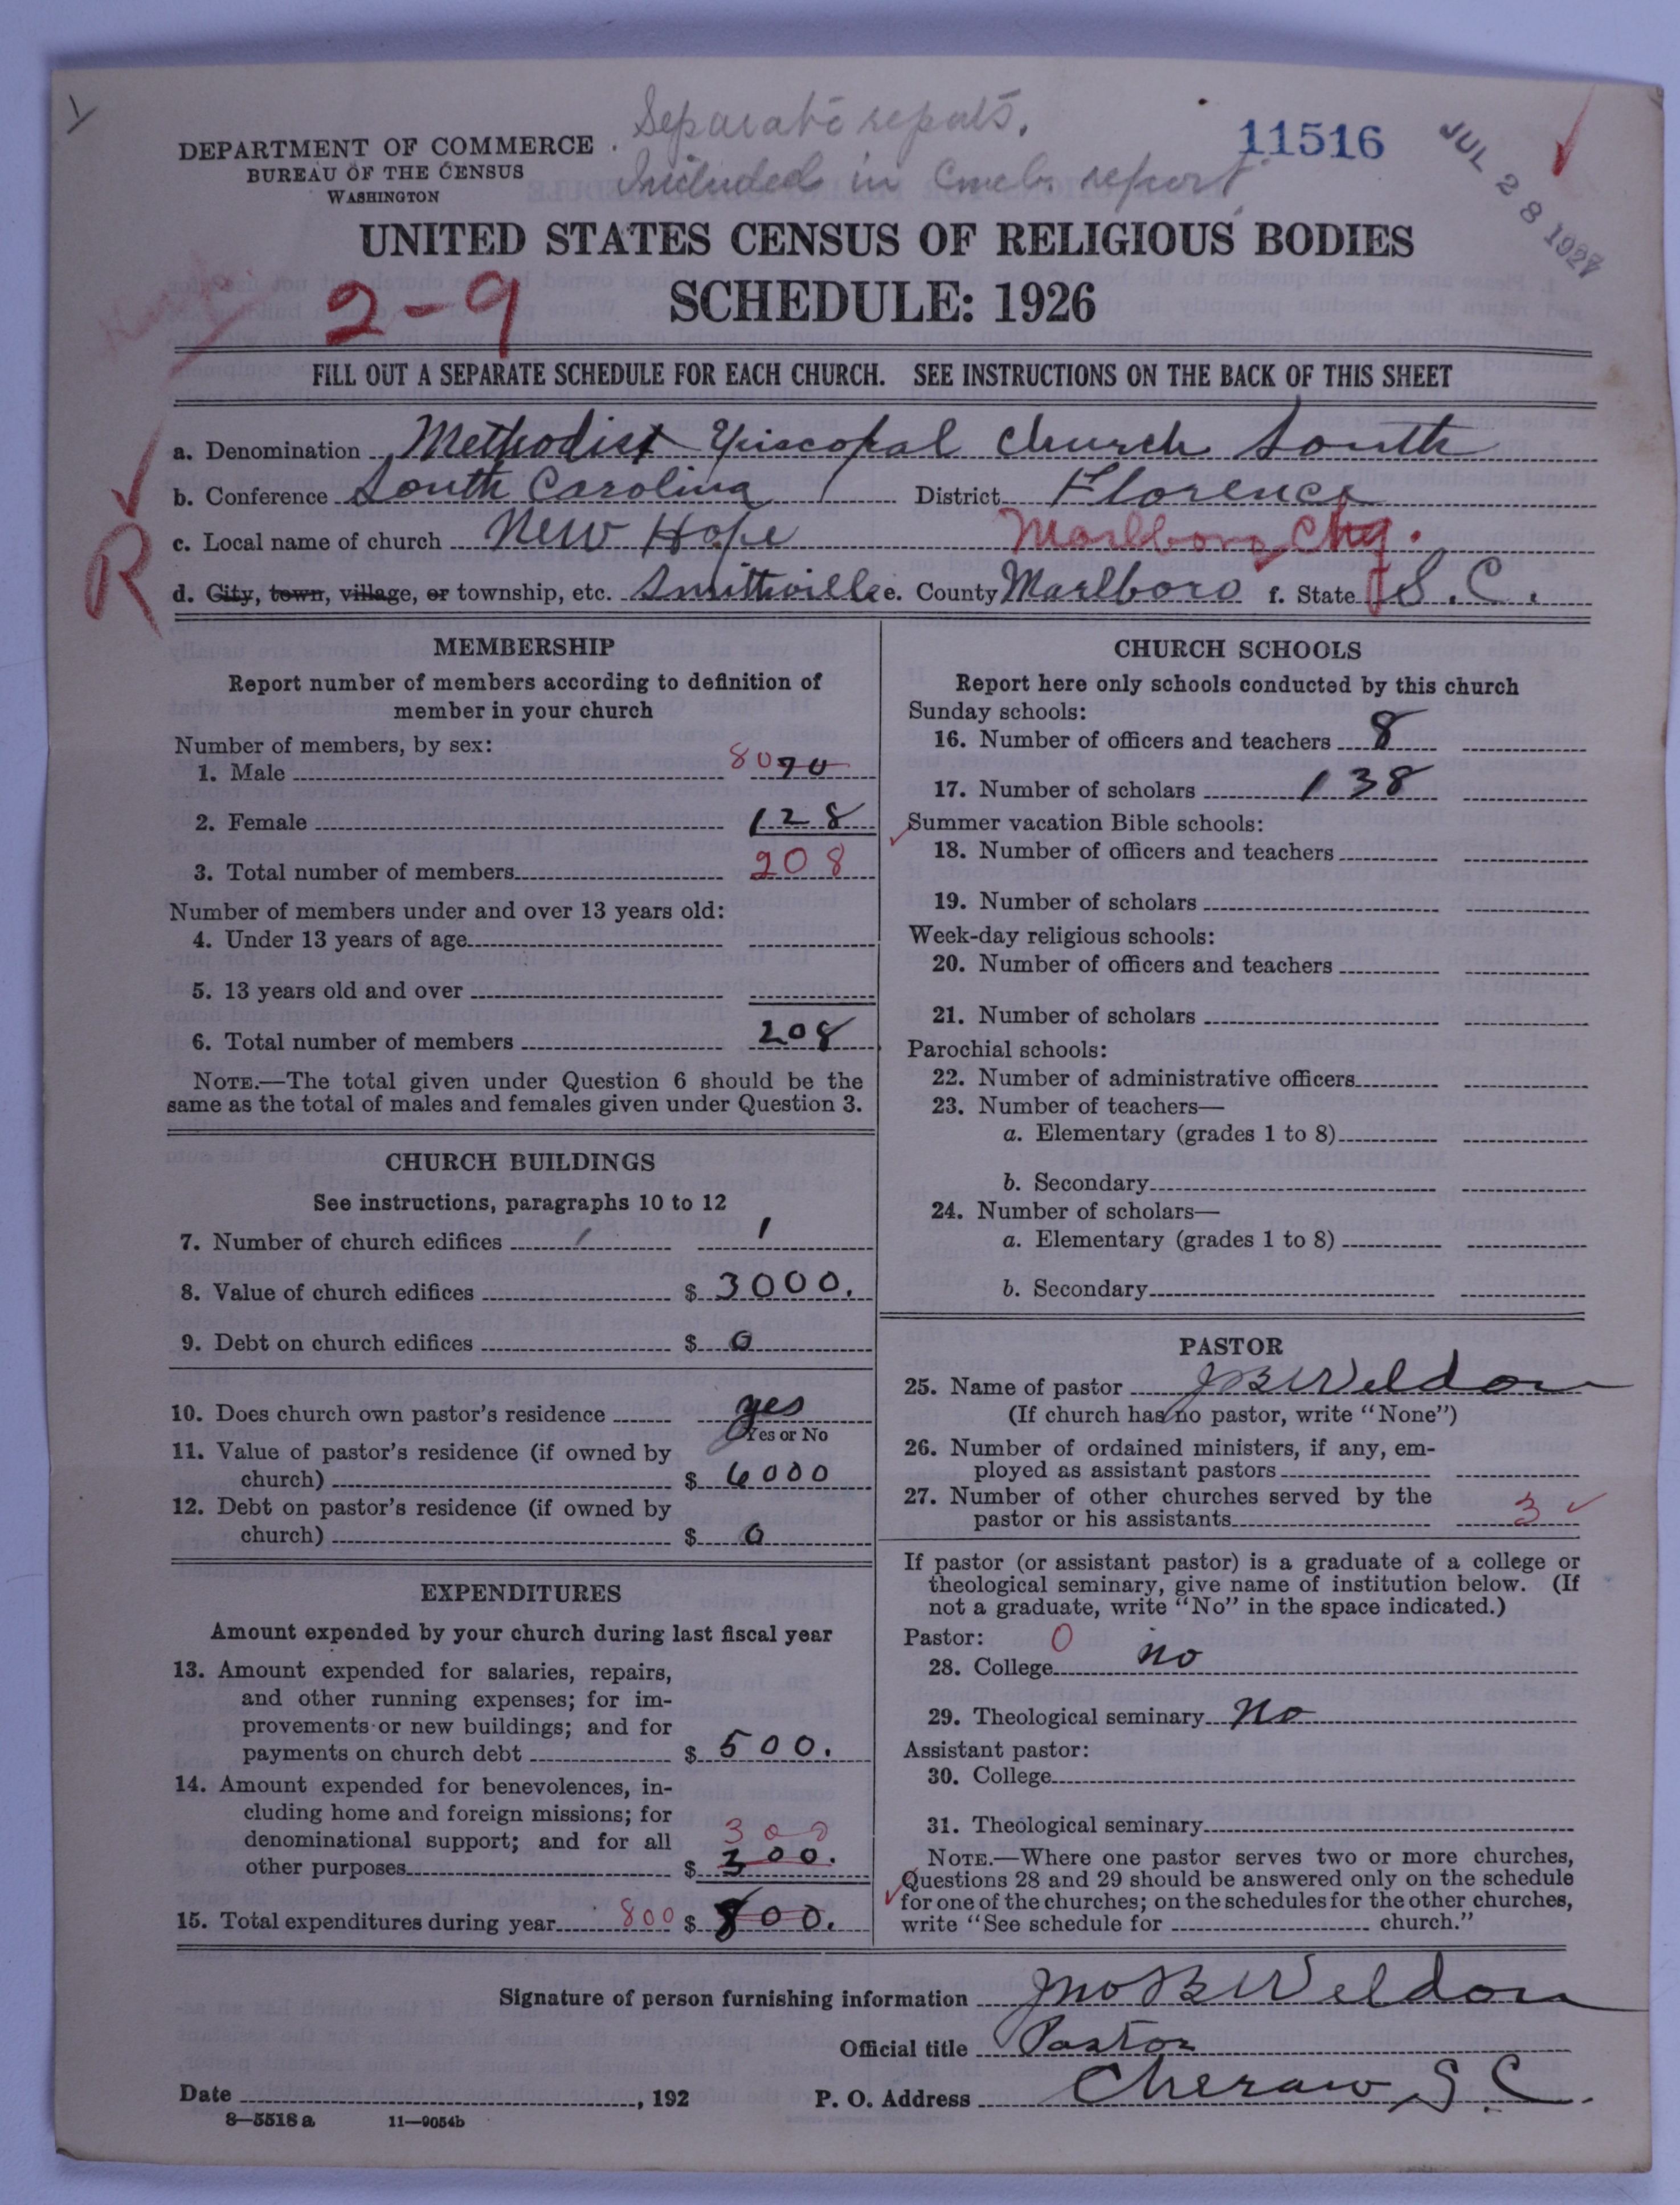 Separate reports.
Included in Comb. report
11516
JUL 28 1927
DEPARTMENT OF COMMERCE
BUREAU OF THE CENSUS
WASHINGTON
UNITED STATES CENSUS OF RELIGIOUS BODIES
2-9 SCHEDULE: 1926
FILL OUT A SEPARATE SCHEDULE FOR EACH CHURCH. SEE INSTRUCTIONS ON THE BACK OF THIS SHEET
a. Denomination Methodist Episcopal Church South
b. Conference South Carolina District Florence
c. Local name of church New Hope Marlboro Chg.
R
d. City, town, village, or township, etc. Smithville e. County Marlboro f. State S.C.
MEMBERSHIP
Report number of members according to definition of
member in your church
Number of members, by sex:
1. Male 80 70
2. Female 128
3. Total number of members 208
Number of members under and over 13 years old:
4. Under 13 years of age
5. 13 years old and over
6. Total number of members 208
NOTE.—The total given under Question 6 should be the
same as the total of males and females given under Question 3.
CHURCH BUILDINGS
See instructions, paragraphs 10 to 12
7. Number of church edifices 1
8. Value of church edifices $ 3000.
9. Debt on church edifices $ 0
10. Does church own pastor's residence yes
Yes or No
11. Value of pastor's residence (if owned by
church) $ 6000
12. Debt on pastor's residence (if owned by
church) $ 0
EXPENDITURES
Amount expended by your church during last fiscal year
13. Amount expended for salaries, repairs,
and other running expenses; for im-
provements or new buildings; and for
payments on church debt $ 500.
14. Amount expended for benevolences, in-
cluding home and foreign missions; for
denominational support; and for all 300
other purposes $ 300.
15. Total expenditures during year 800 $ 800.
CHURCH SCHOOLS
Report here only schools conducted by this church
Sunday schools:
16. Number of officers and teachers 8
17. Number of scholars 138
Summer vacation Bible schools:
18. Number of officers and teachers
19. Number of scholars
Week-day religious schools:
20. Number of officers and teachers
21. Number of scholars
Parochial schools:
22. Number of administrative officers
23. Number of teachers—
a. Elementary (grades 1 to 8)
b. Secondary
24. Number of scholars—
a. Elementary (grades 1 to 8)
b. Secondary
PASTOR
25. Name of pastor J B Weldon
(If church has no pastor, write "None")
26. Number of ordained ministers, if any, em-
ployed as assistant pastors
27. Number of other churches served by the
pastor or his assistants 3
If pastor (or assistant pastor) is a graduate of a college or
theological seminary, give name of institution below. (If
not a graduate, write "No" in the space indicated.)
Pastor: 0
28. College no
29. Theological seminary no
Assistant pastor:
30. College
31. Theological seminary
NOTE.—Where one pastor serves two or more churches,
Questions 28 and 29 should be answered only on the schedule
for one of the churches; on the schedules for the other churches,
write "See schedule for church."
Signature of person furnishing information Jno B Weldon
Official title Pastor
Date , 192 P. O. Address Cheraw S.C.
8—5518 a 11—9054b